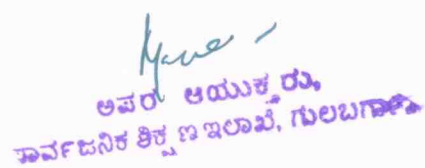 ಅಪರ ಆಯುಕ್ತರು,
ಸಾರ್ವಜನಿಕ ಶಿಕ್ಷಣ ಇಲಾಖೆ, ಗುಲಬರ್ಗಾ